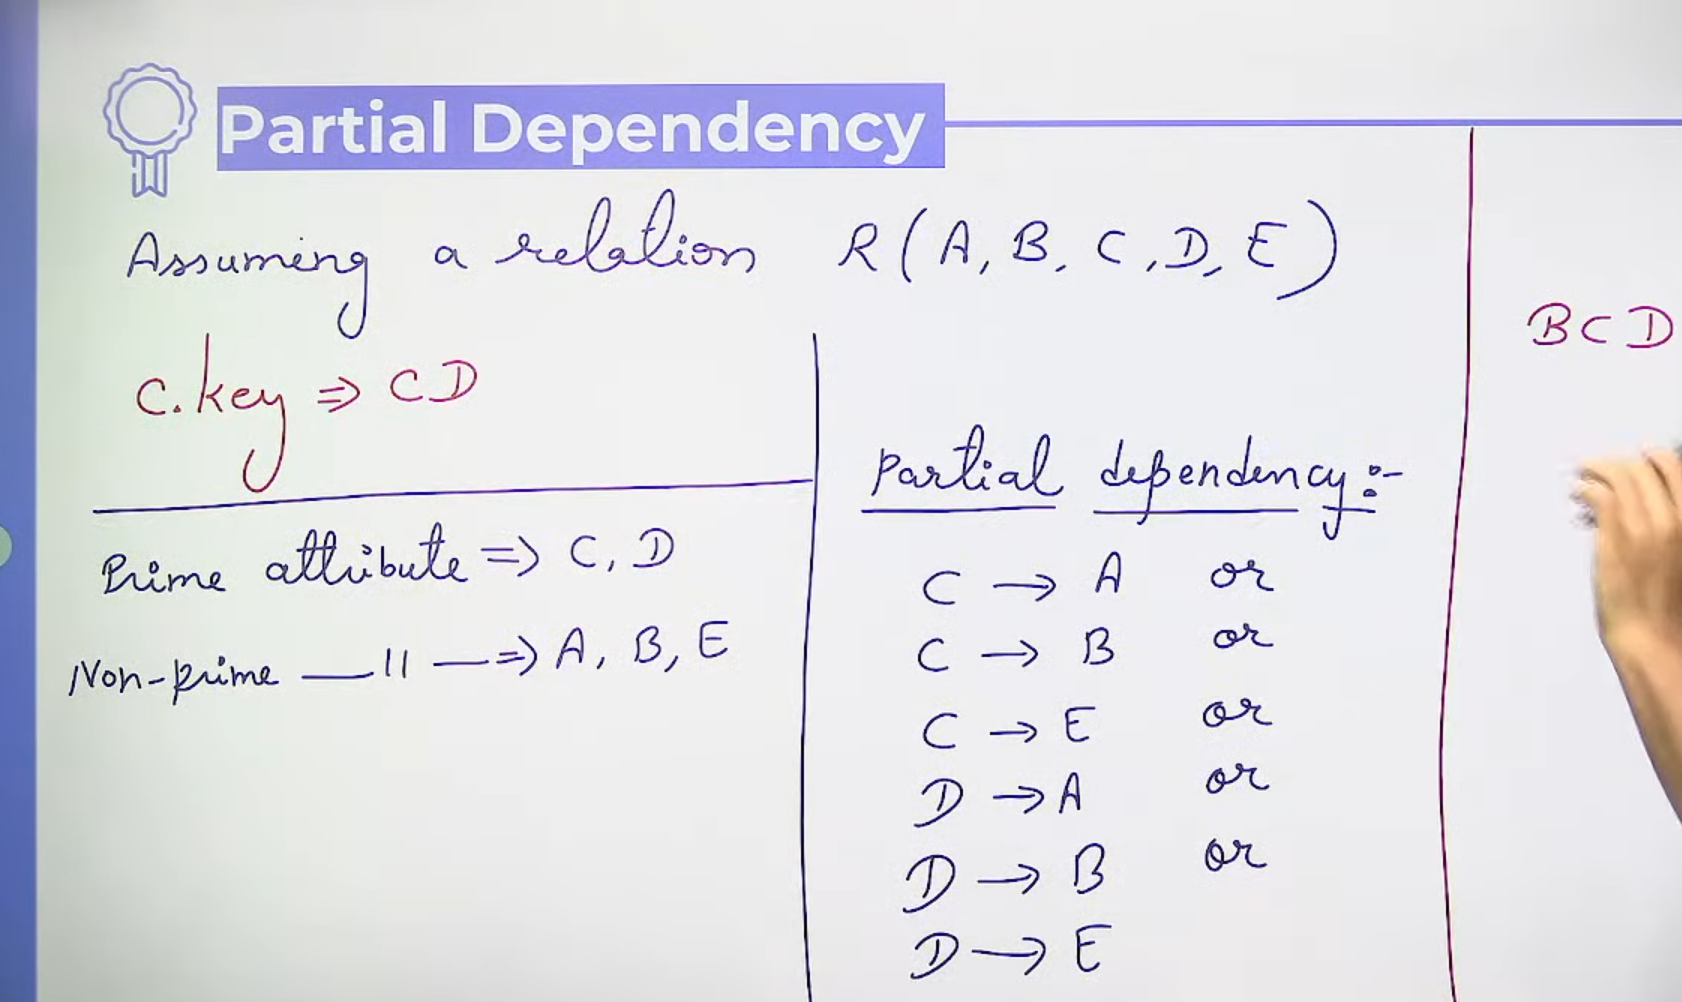 Partial Dependency
Assuming a relation R(A, B, C, D, E)
C.key ⇒ CD
Prime attribute ⇒ C, D
Non-prime —〃—⇒ A, B, E
Partial dependency:-
C → A or
C → B or
C → E or
D → A or
D → B or
D → E
BCD